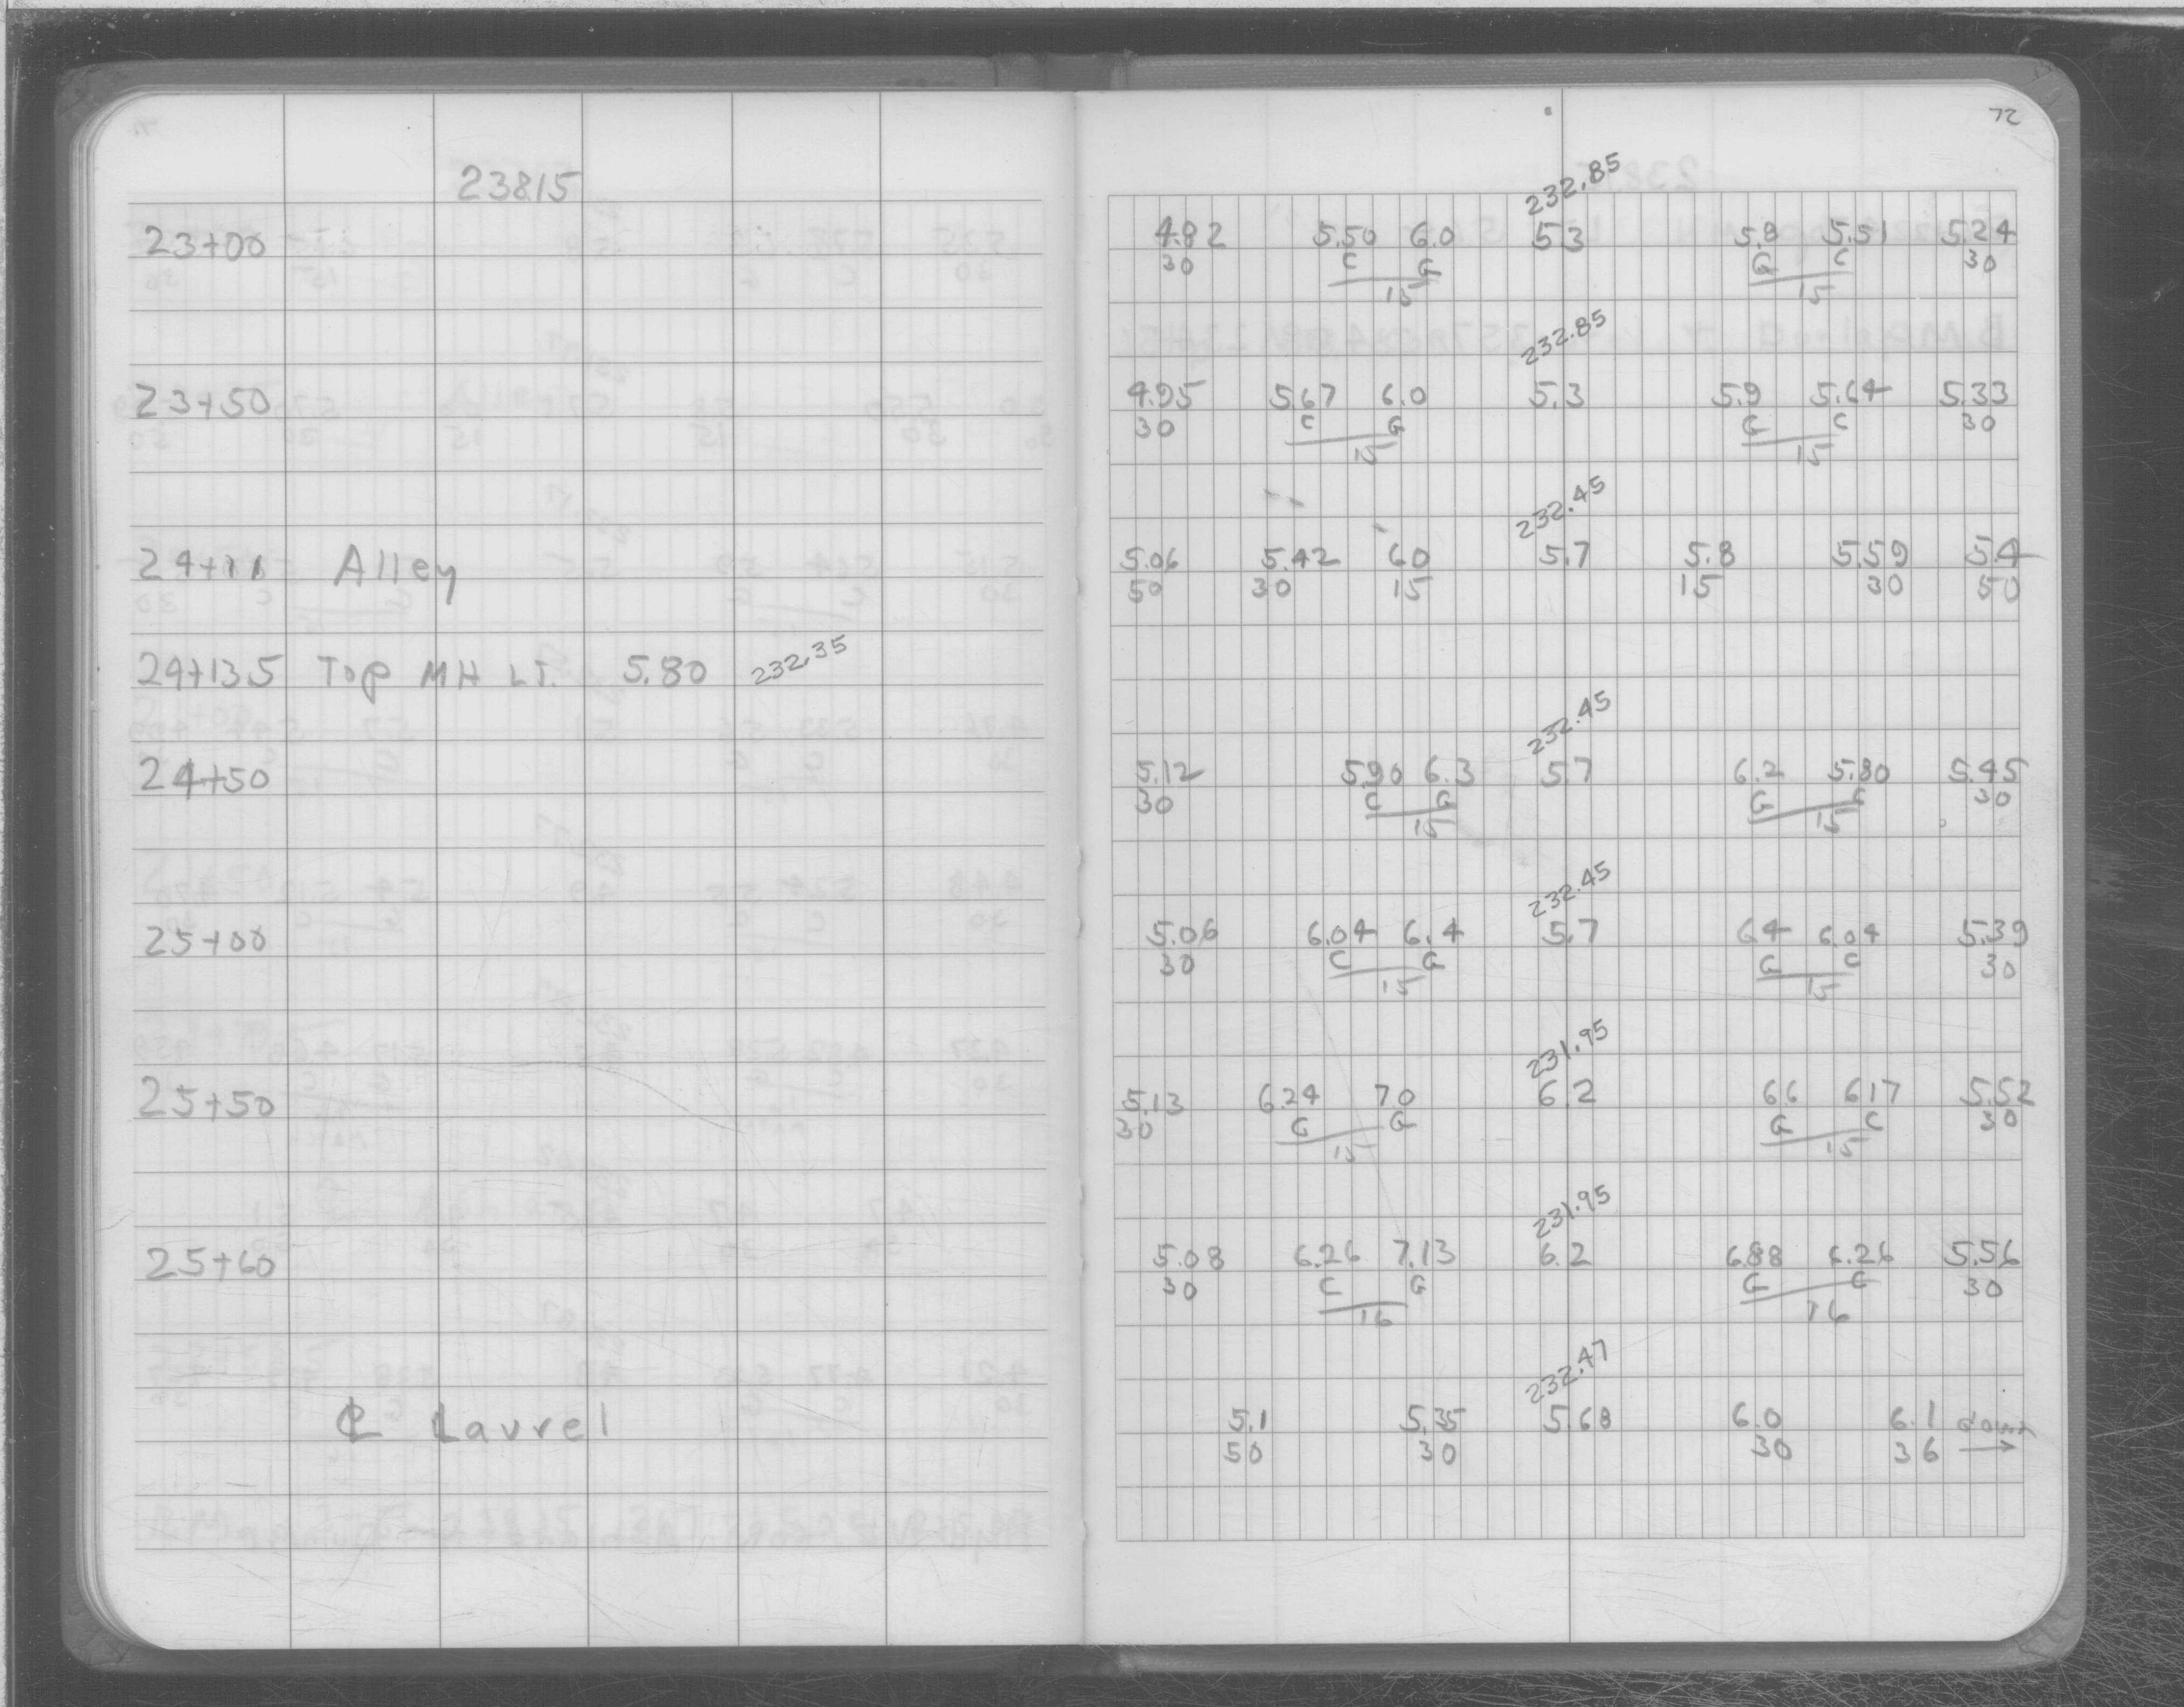 72
23815
232.85
23+00 4.82 5.50 6.0 5.3 5.8 5.51 5.24
30 C G G C 30
15 15
232.85
23+50 4.95 5.67 6.0 5.3 5.9 5.64 5.33
30 C G G C 30
15 15
232.45
24+11 Alley 5.06 5.42 60 5.7 5.8 5.59 5.4
50 30 15 15 30 50
24+13.5 Top MH LT. 5.80 232.35
232.45
24+50 5.12 5.90 6.3 5.7 6.2 5.80 5.45
30 C G G C 30
15 15
232.45
25+00 5.06 6.04 6.4 5.7 64 6.04 5.39
30 C G G C 30
15 15
231.95
25+50 5.13 6.24 70 6.2 66 617 5.52
30 G G G C 30
15 15
231.95
25+60 5.08 6.26 7.13 6.2 688 6.26 5.56
30 C G G C 30
16 16
232.47
℄ Laurel 5.1 5.35 5.68 6.0 6.1 down
50 30 30 36 →